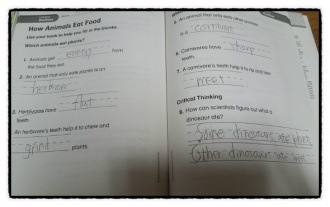 How Animals Eat Food
Use your book to help you fill in the blanks.
Which animals eat plants?
1. Animals get energy from
the food they eat.
2. An animal that only eats plants is an
3. Herbivores have flat
teeth.
An herbivore's teeth help it to chew and
grind plants.
5. An animal that only eats other animals
is a carnivore
6. Carnivores have sharp
teeth.
7. A carnivore's teeth help it to rip and tear
meat
Critical Thinking
8. How can scientists figure out what a
dinosaur ate?
Some dinosaurs ate plant
Other dinosaurs ate meat